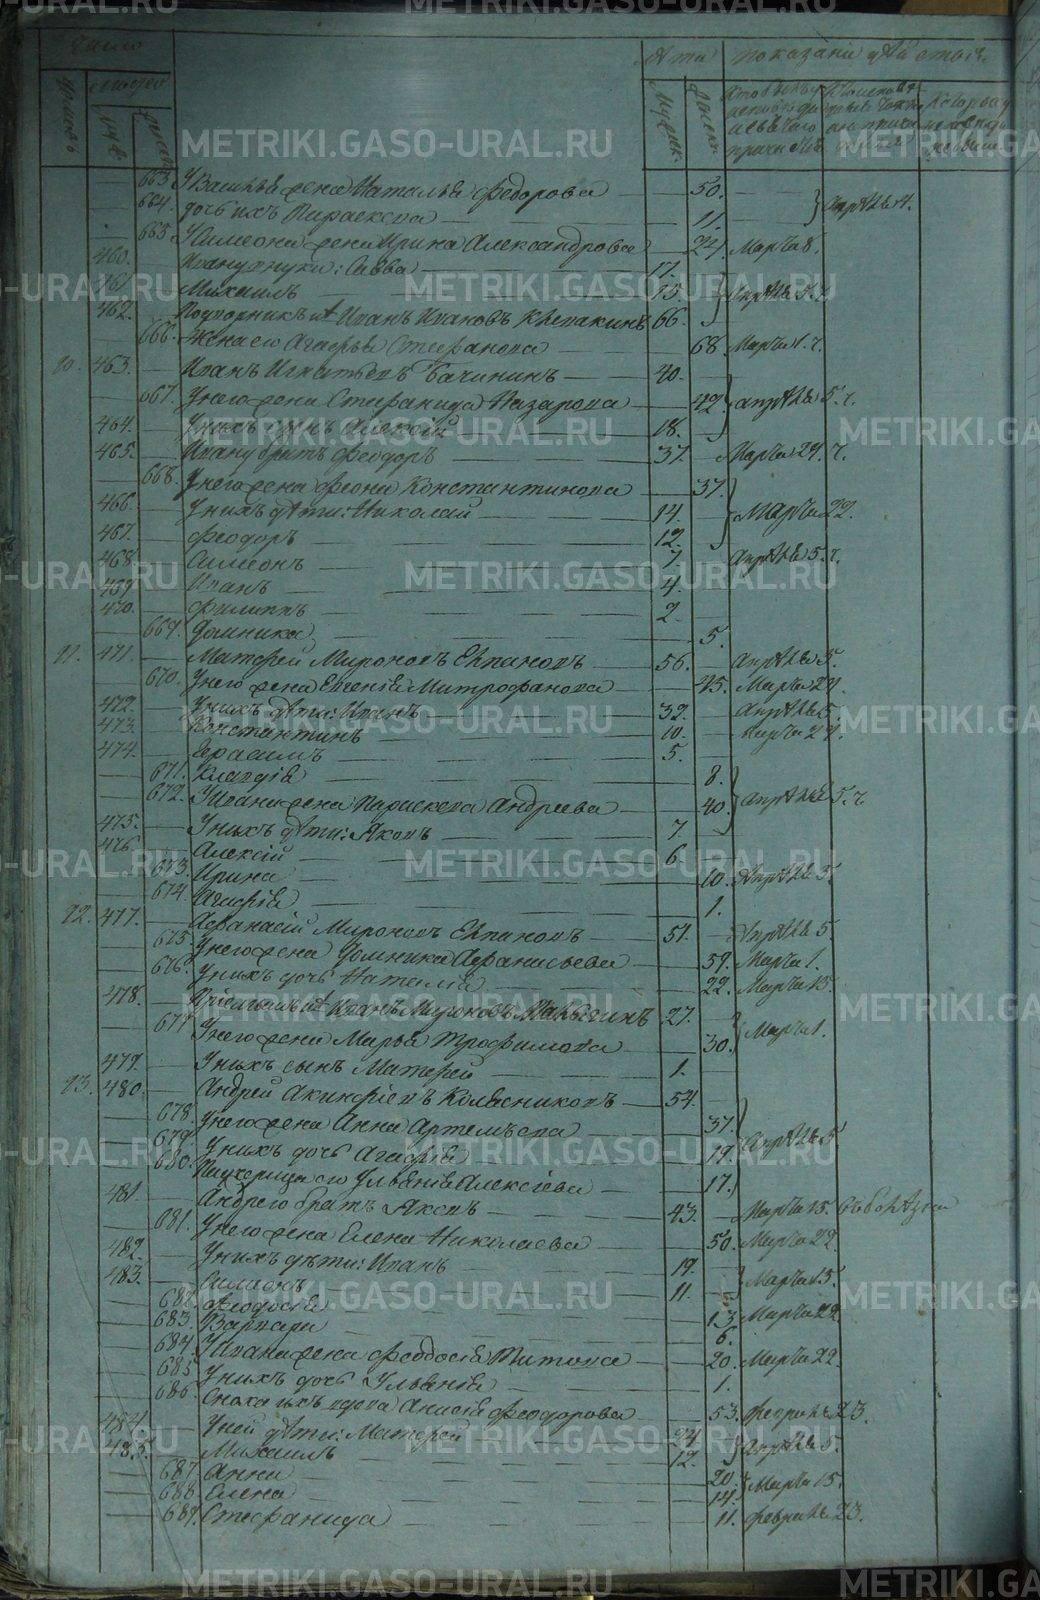 Число
людей
Лѣта показаніе дѣйствія.
663. У Василья жена Наталья Федорова 50.
664. дочь ихъ Параскева 11. Апрѣля 4.
665. У Симеона жена Ирина Александрова 24. Марта 8.
460. Ивану внуки: Савва 17.
461. Михаилъ 15. Апрѣля 5. г.
462. Иванъ Ивановъ 66.
666. Жена его Агафья Стефанова 68. Марта 1. г.
10. 463. Иванъ Игнатьевъ Бачининъ 40.
667. У него жена Стефанида Назарова 42. апрѣля 5. г.
464. У нихъ сынъ Алексѣй 18.
465. Ивану братъ Феодоръ 37. Марта 29. г.
668. У него жена Константинова 37.
466. У нихъ дѣти: Николай 14. Марта 22.
467. Феодоръ 12.
468. Симеонъ 7. Апрѣля 5. г.
469. Иванъ 4.
470. Филиппъ 2.
669. Домника 5.
11. 471. Матфей Мироновъ 56. Апрѣля 5.
670. У него жена Евгенія Митрофанова 45. Марта 29.
472. У нихъ дѣти: Иванъ 32. Апрѣля 5.
473. Константинъ 10. Марта 29.
474. Герасимъ 5.
671. Клавдія 8.
672. У Ивана жена Парискева Андреева 40. Апрѣля 5. г.
475. У нихъ дѣти: Яковъ 7.
476. Алексій 6.
673. Ирина 10. Апрѣля 5.
674. Агафія 1.
12. 477. Афанасій Мироновъ 51. Апрѣля 5.
675. У него жена Домника Афанасьева 59. Марта 1.
676. У нихъ дочь Наталія 22. Марта 15.
478. Иванъ Мироновъ 27.
677. У него жена Марья Трофимова 30. Марта 1.
479. У нихъ сынъ Матфей 1.
13. 480. Андрей Акинфіевъ Колесниковъ 54.
678. У него жена Анна Артемьева 37.
679. У нихъ дочь Агафія 19. Апрѣля 5
680. Падчерица его Ульянія Алексіева 17.
481. Андрею братъ Яковъ 43. Марта 15.
681. У него жена Елена Николаева 50. Марта 22.
482. У нихъ дѣти: Иванъ 19.
483. Симеонъ 11. Марта 15.
682. Феодосія 13. Марта 22.
683. Варвара 6.
684. У Ивана жена Феодосія Титова 20. Марта 22.
685. У нихъ дочь Ульянія 1.
686. Сноха ихъ вдова Анисія Феодорова 53. Февраля 23.
484. У ней дѣти: Матфей 24
485. Михаилъ 12. Апрѣля 5.
687. Анна 20.
688. Елена 14. Марта 15.
689. Стефанида 11. Февраля 23.
METRIKI.GASO-URAL.RU